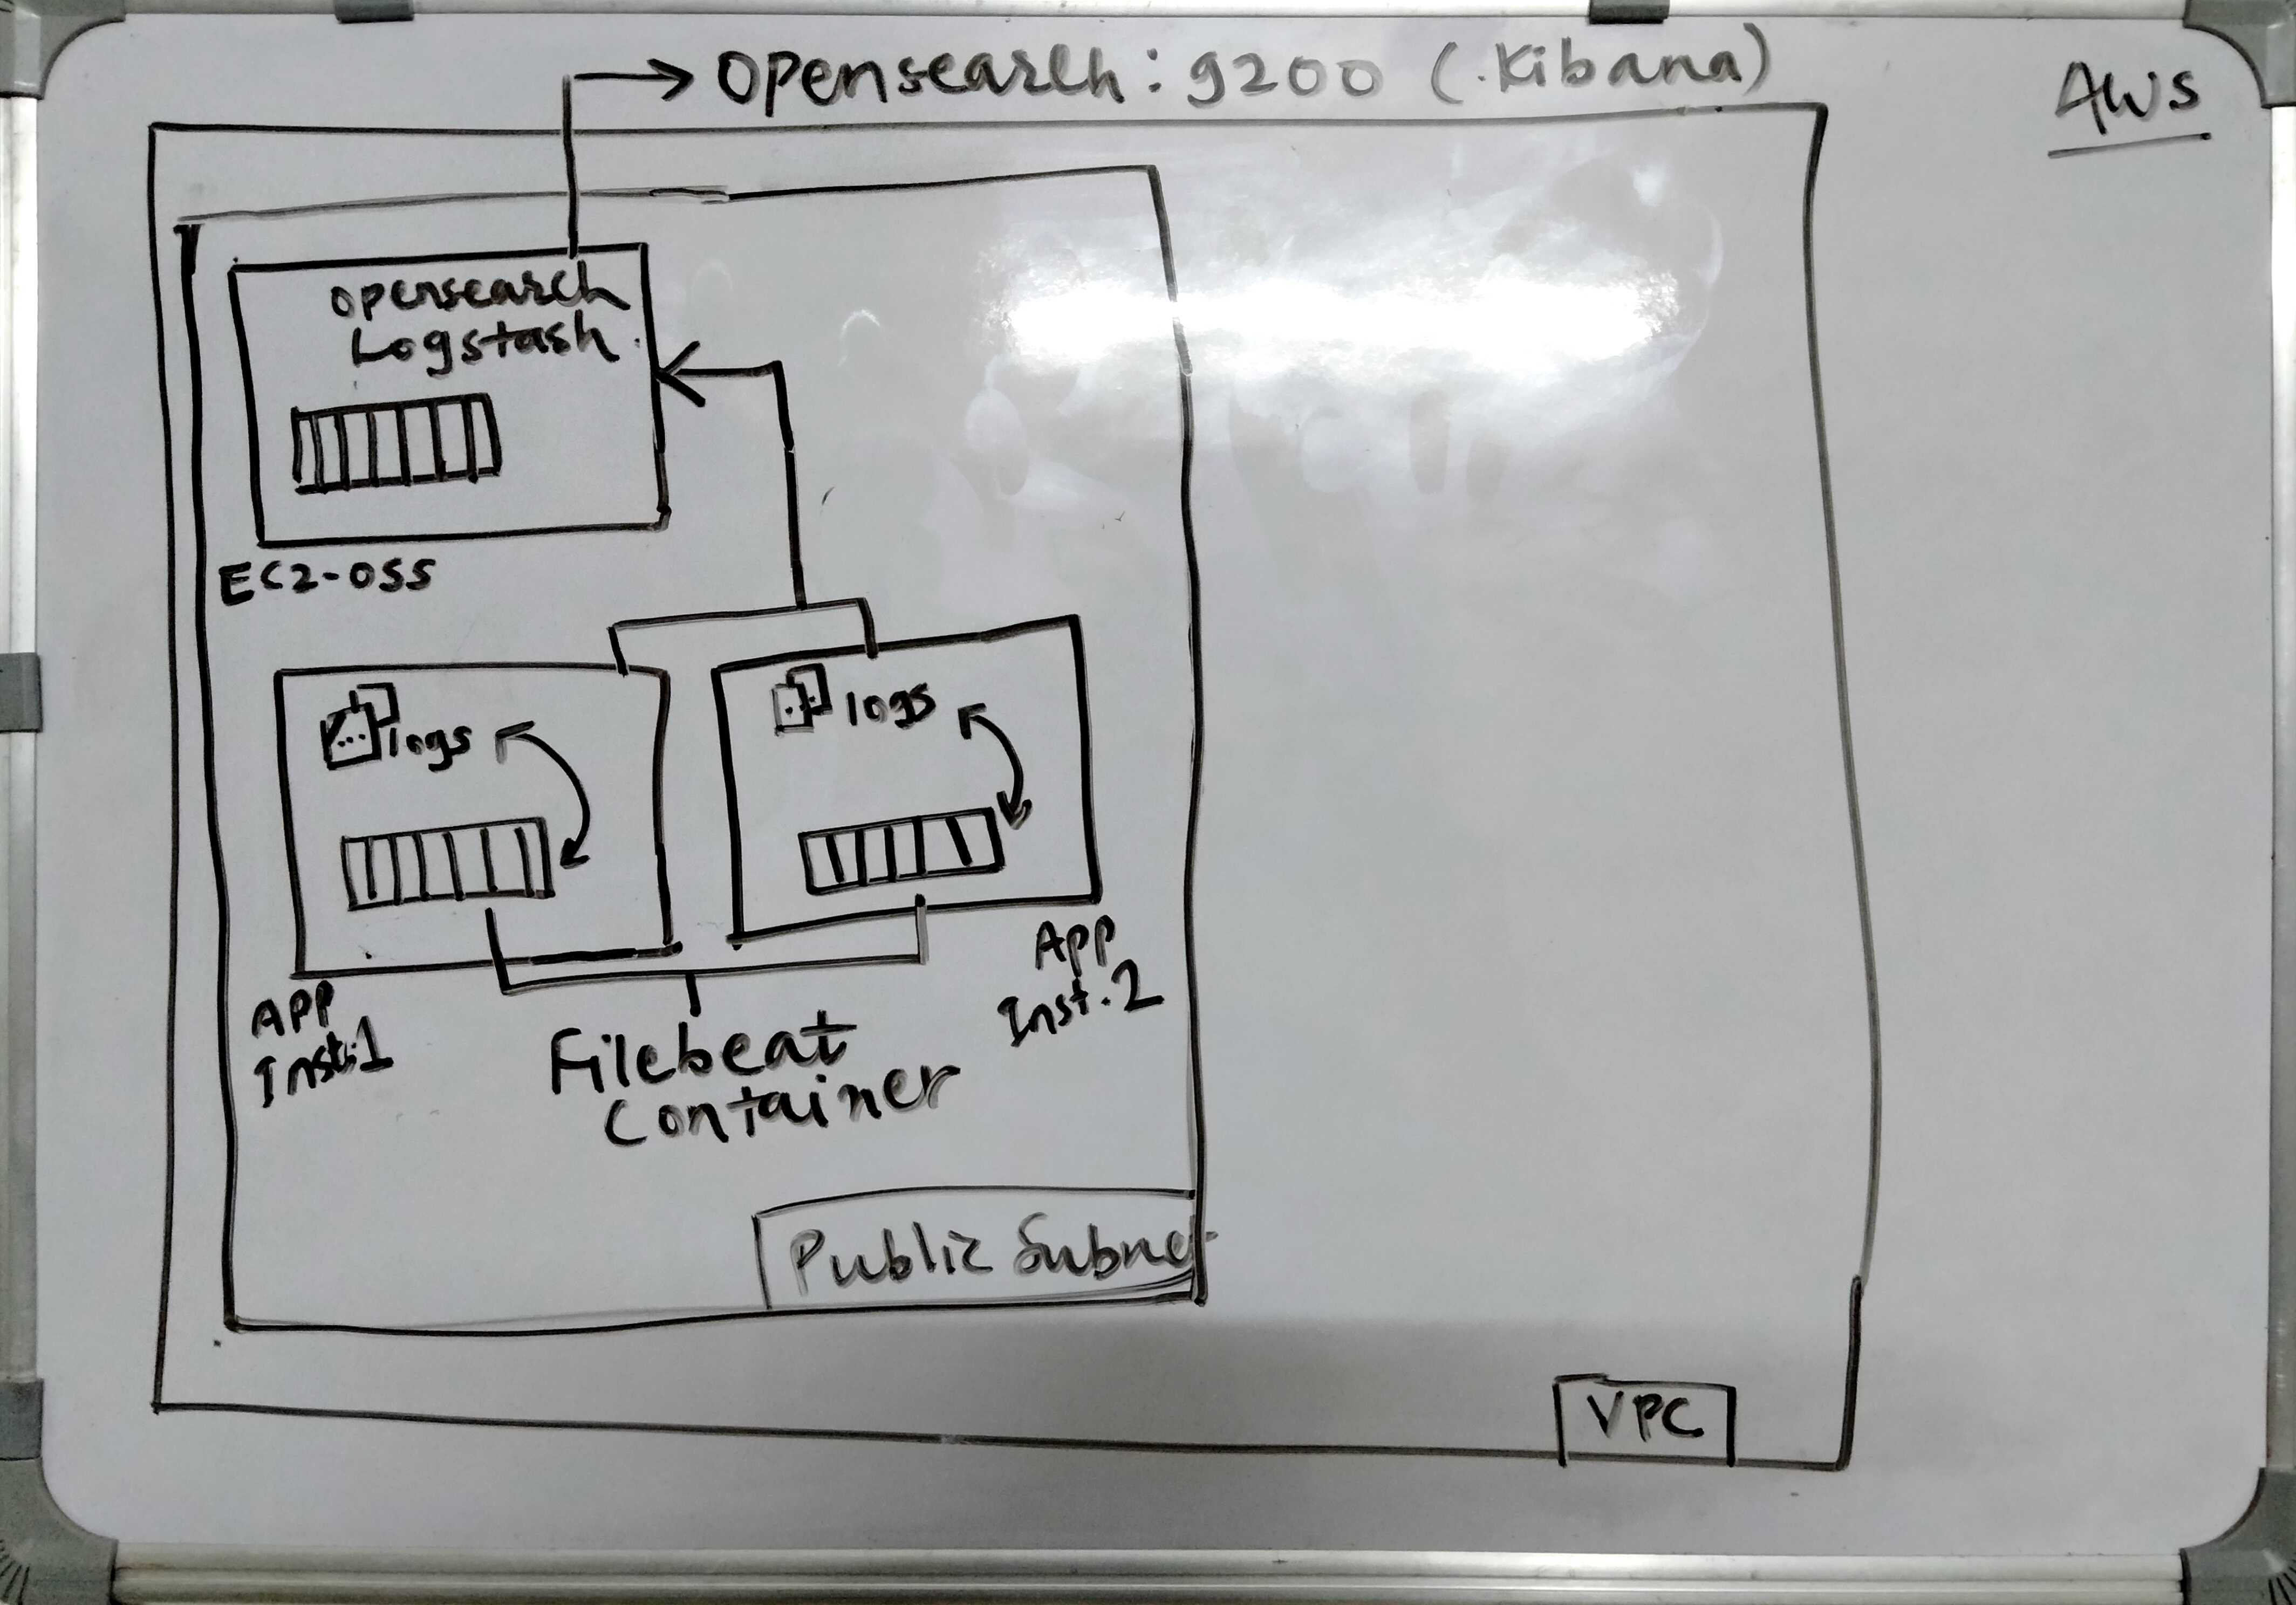 Opensearch: 9200 (Kibana)
AWS
Opensearch
Logstash.
EC2-OSS
logs
logs
APP
Inst.1
APP
Inst.2
Filebeat
Container
Public Subnet
VPC